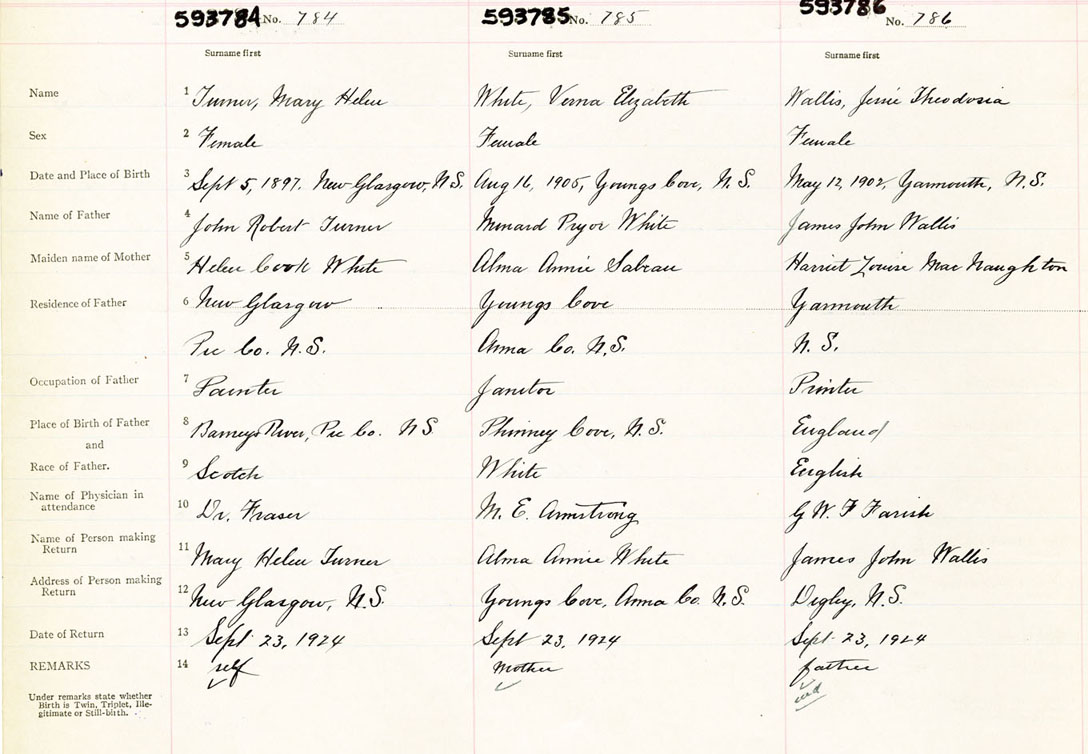 593784 No. 784 593785 No. 785 593786 No. 786
Surname first Surname first Surname first
Name 1 Turner, Mary Helen White, Verna Elizabeth Wallis, Jessie Theodosia
Sex 2 Female Female Female
Date and Place of Birth 3 Sept 5, 1897. New Glasgow, N.S. Aug 16, 1905, Youngs Cove, N.S. May 12, 1902, Yarmouth, N.S.
Name of Father 4 John Robert Turner Pryor White James John Wallis
Maiden name of Mother 5 Helen Cook White Alma Annie Sabeau Harriet Louise MacNaughton
Residence of Father 6 New Glasgow Youngs Cove Yarmouth
Pic Co. N.S. Anna Co. N.S. N.S.
Occupation of Father 7 Painter Janitor Printer
Place of Birth of Father 8 Barneys River, Pic Co. N S Phinney Cove, N.S. England
and
Race of Father. 9 Scotch White English
Name of Physician in
attendance 10 Dr. Fraser M. E. Armstrong G W. F Farish
Name of Person making
Return 11 Mary Helen Turner Alma Annie White James John Wallis
Address of Person making
Return 12 New Glasgow, N.S. Youngs Cove, Anna Co. N.S. Digby, N.S.
Date of Return 13 Sept 23, 1924 Sept 23, 1924 Sept 23, 1924
REMARKS 14 self mother father
Under remarks state whether
Birth is Twin, Triplet, Ille-
gitimate or Still-birth.